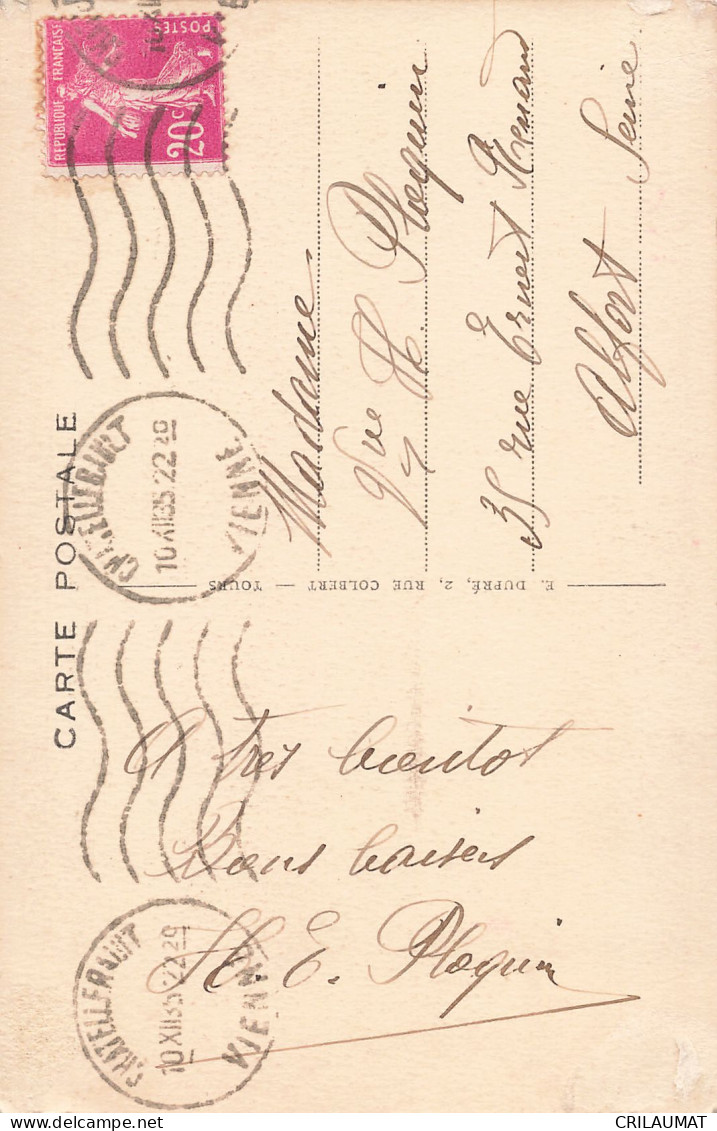 CARTE POSTALE
REPUBLIQUE FRANÇAISE
POSTES
20c
CHATELLERAULT
10 XII 35 22 20
VIENNE
CHATELLERAULT
10 XII 35 22 20
VIENNE
E. DUPRÉ, 2, RUE COLBERT — TOURS
A très bientot
Bons baisers
H. E. Ploquin
Madame
Vve H. Ploquin
35 rue Ernest Renan
Alfort Seine
CRILAUMAT